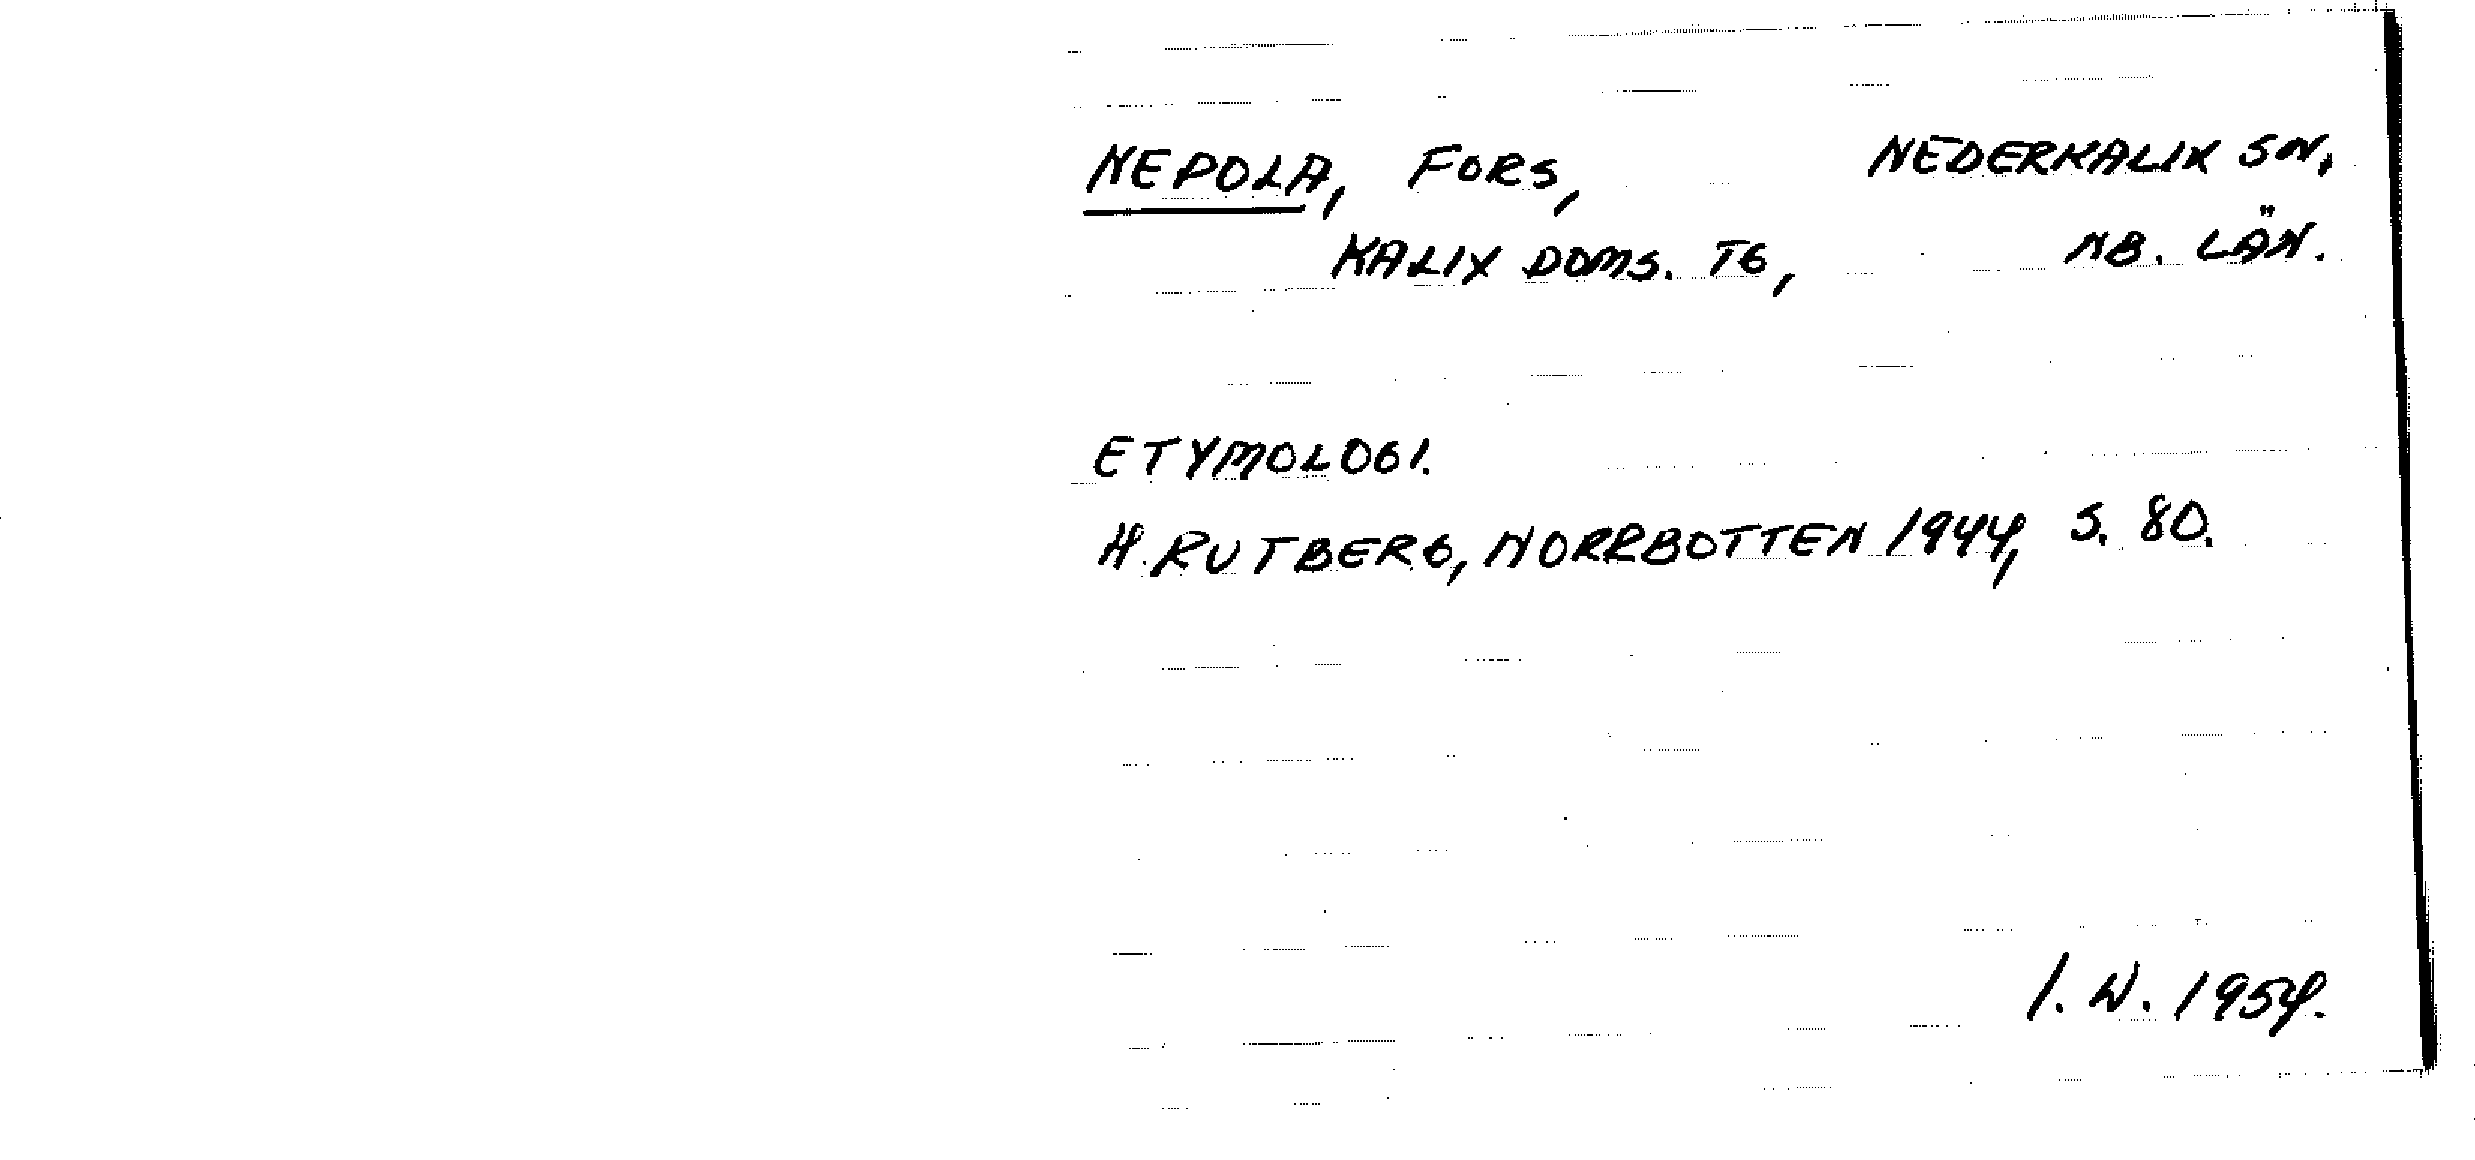 NEPOLA, FORS, NEDERKALIX SN,
KALIX DOMS. TG, NB. LÄN.
ETYMOLOGI.
H. RUTBERG, NORRBOTTEN 1944, S. 80.
I. W. 1954.